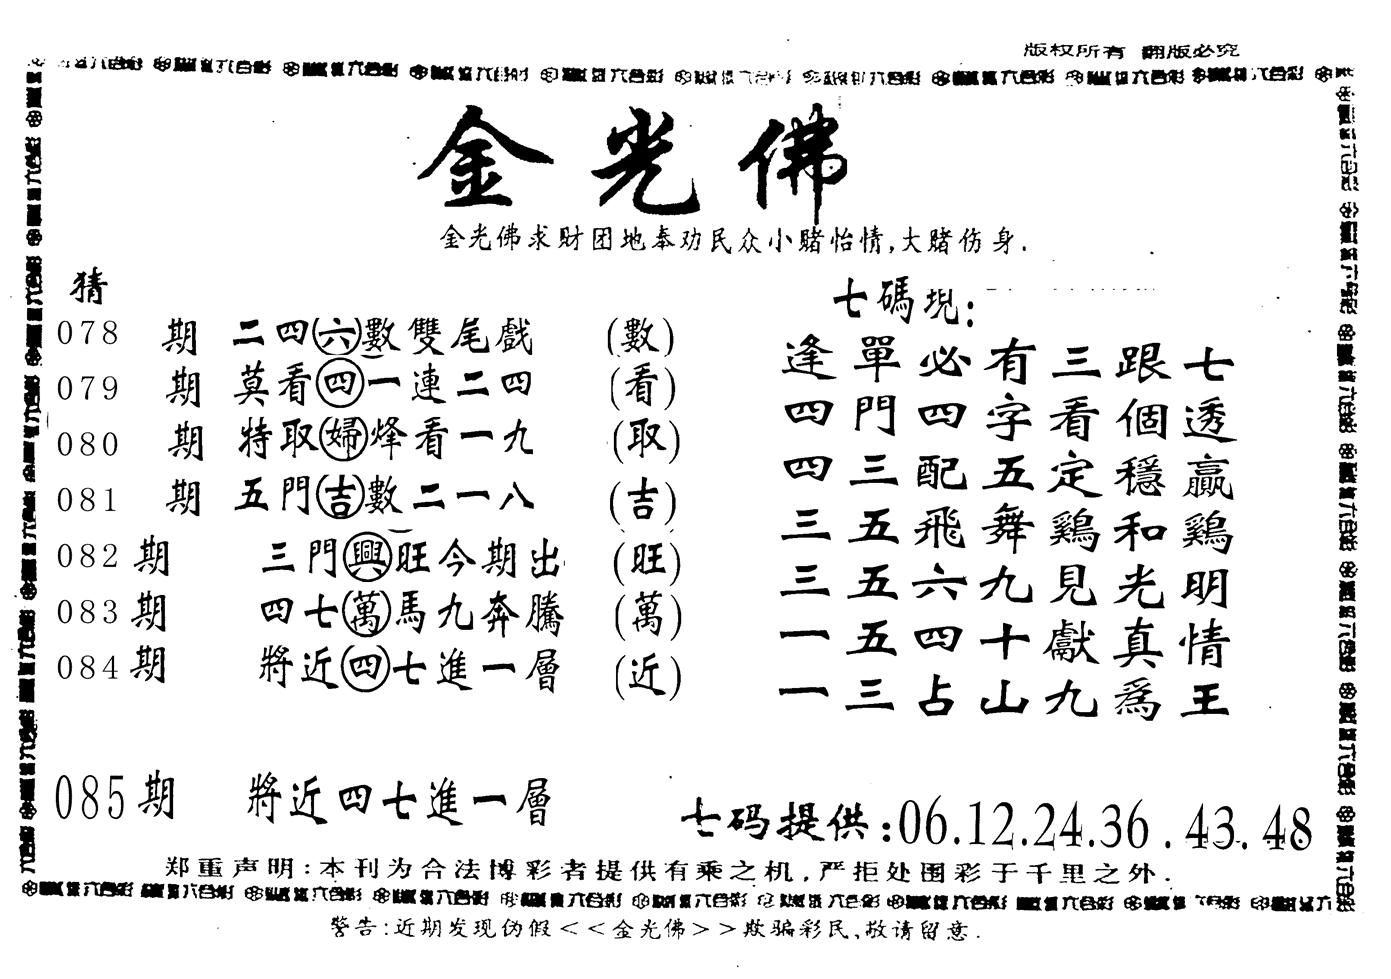 版权所有 翻版必究
金光佛
金光佛求财团地奉劝民众小赌怡情,大赌伤身.
猜
078 期 二四六數雙尾戲 (數)
079 期 莫看四一連二四 (看)
080 期 特取婦烽看一九 (取)
081 期 五門吉數二一八 (吉)
082期 三門興旺今期出 (旺)
083期 四七萬馬九奔騰 (萬)
084期 將近四七進一層 (近)
085期 將近四七進一層
七碼坭:
逢單必有三跟七
四門四字看個透
四三配五定穩贏
三五飛舞鷄和鷄
三五六九見光明
一五四十獻真情
一三占山九爲王
七码提供:06.12.24.36.43.48
郑重声明:本刊为合法博彩者提供有乘之机,严拒处围彩于千里之外.
警告:近期发现伪假<<金光佛>>欺骗彩民,敬请留意.